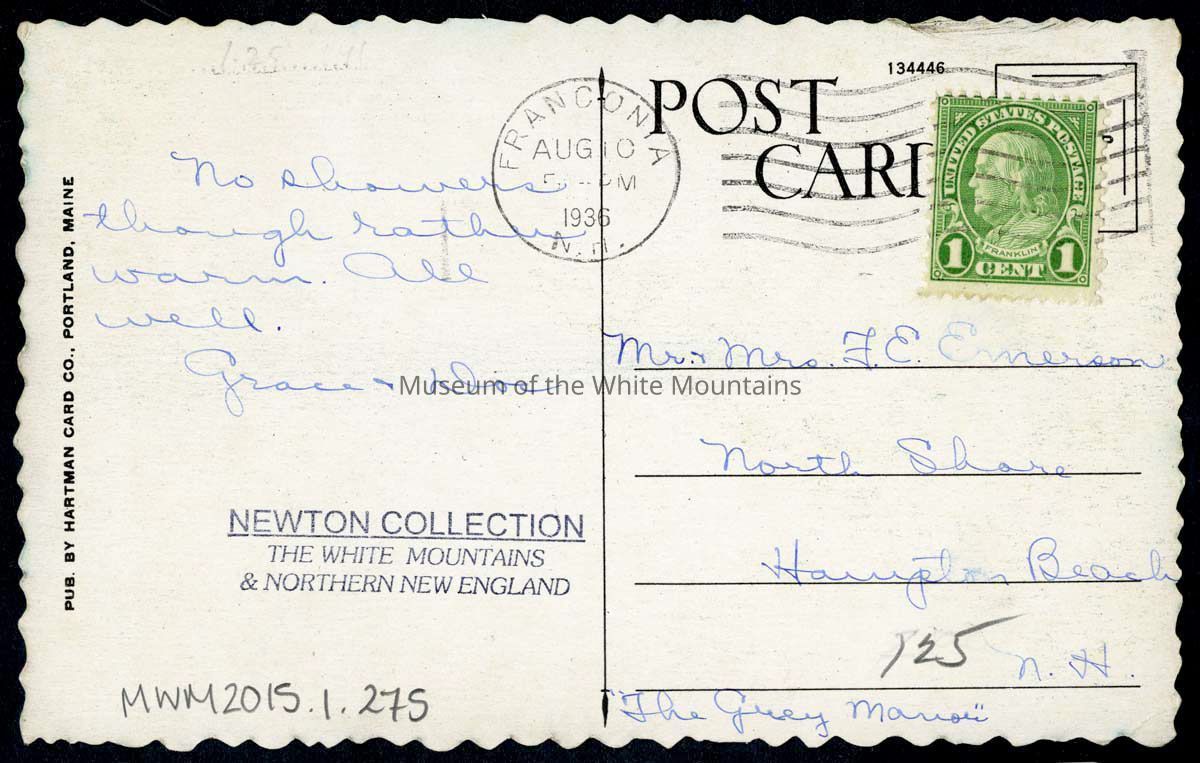 134446
POST
CARD
FRANCONIA
AUG 10
5 - PM
1936
N.H.
UNITED STATES POSTAGE
FRANKLIN
1 CENT 1
No showers
though rather
warm. All
well.
Grace +
Museum of the White Mountains
PUB. BY HARTMAN CARD CO., PORTLAND, MAINE
Mr. + Mrs. F. E. Emerson
North Shore
Hampton Beach
N. H.
"The Grey Manor"
125
NEWTON COLLECTION
THE WHITE MOUNTAINS
& NORTHERN NEW ENGLAND
MWM2015.1.275